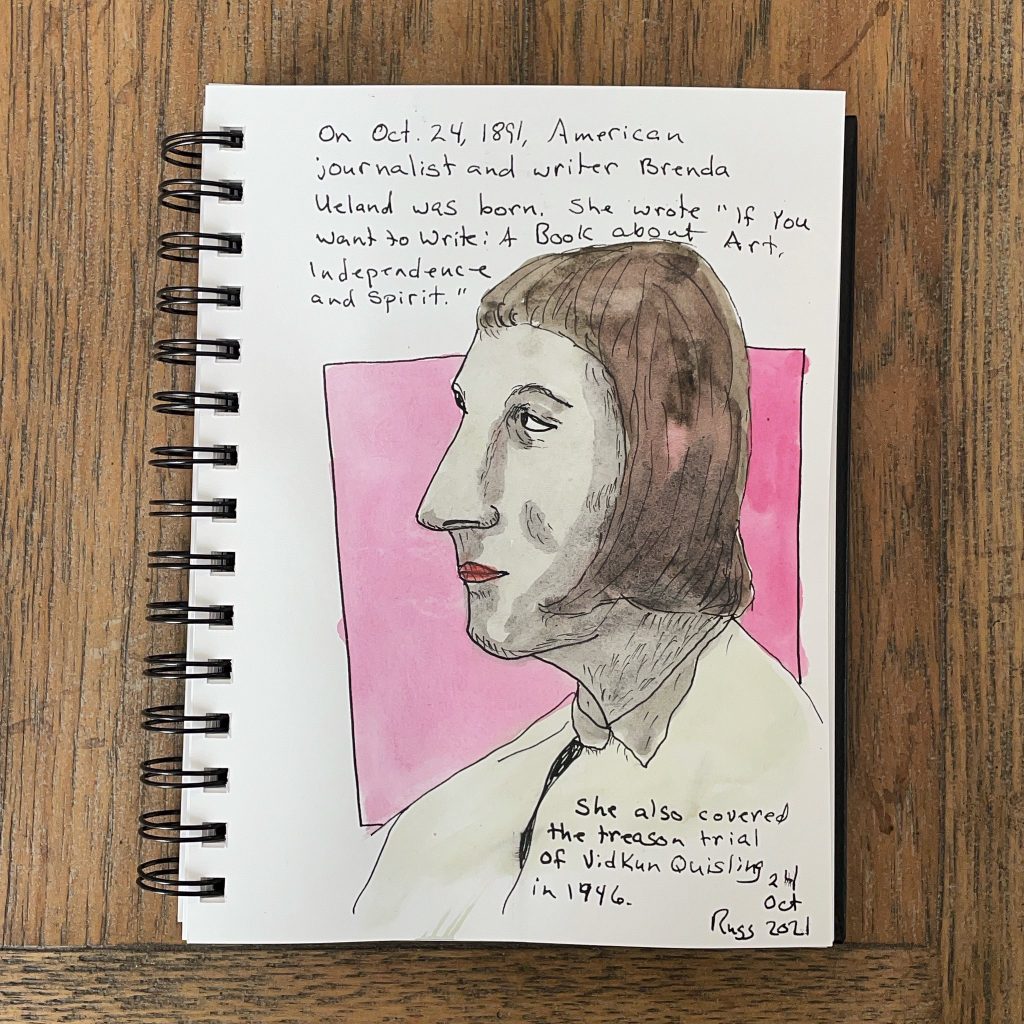 On Oct. 24, 1891, American
journalist and writer Brenda
Ueland was born. She wrote "If You
want to Write: A Book about Art,
Independence
and Spirit."
She also covered
the treason trial
of Vidkun Quisling
in 1946.
24
Oct
Russ 2021